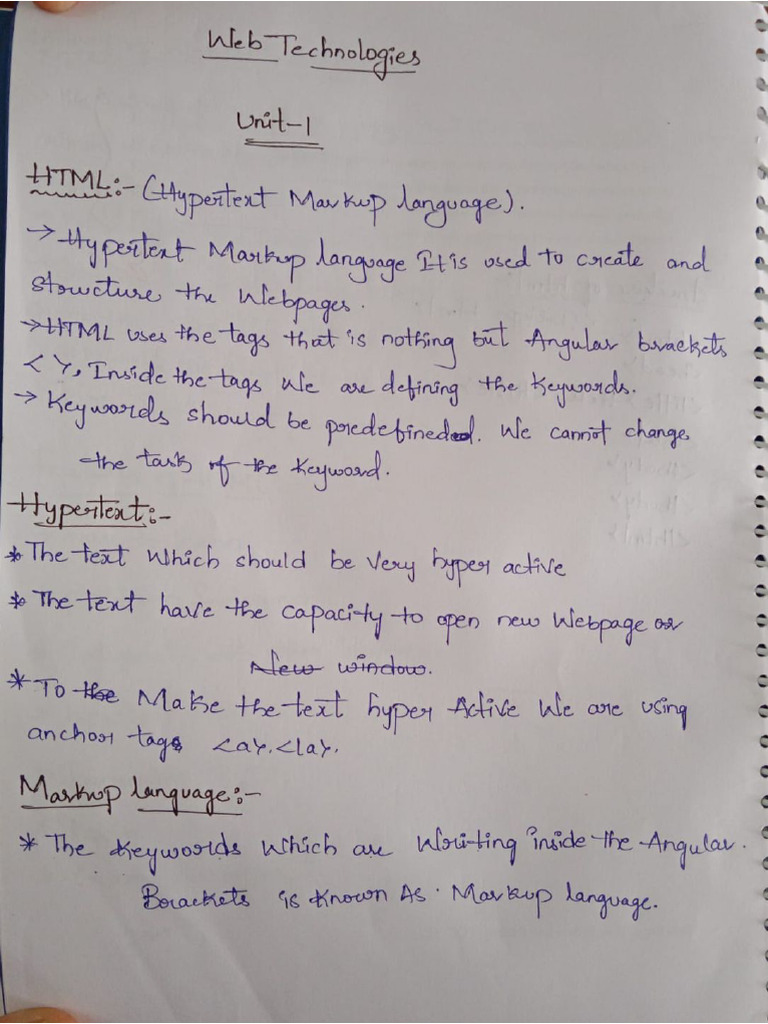 Web Technologies
Unit-1
HTML:- (Hypertext Markup language).
→ Hypertext Markup language It is used to create and
structure the Webpages.
→ HTML uses the tags that is nothing but Angular brackets
< >, Inside the tags We are defining the Keywords.
→ Keywords should be predefined. We cannot change
the task of the Keyword.
Hypertext:-
* The text Which should be Very hyper active
* The text have the capacity to open new Webpage or
New window.
* To the Make the text hyper Active We are using
anchor tags <a>.</a>.
Markup language:-
* The Keywords Which are Writing inside the Angular.
Brackets is Known As. Markup language.